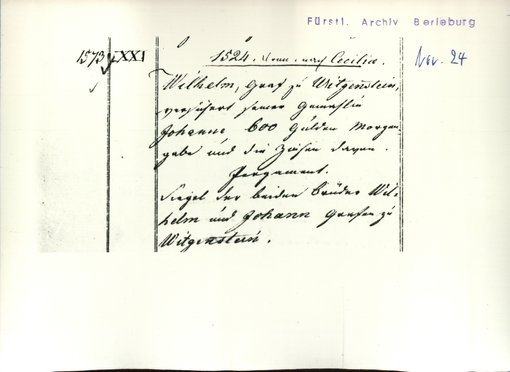 Fürstl. Archiv Berleburg
Nov. 24
1573
LXXI
1524. Donn. nach Cecilia.
Wilhelm, Graf zu Witgenstein,
versichert seiner Gemahlin
Johanne 600 Gulden Morgen
gabe und die Zinsen davon.
Pergament.
Siegel der beiden Brüder Wil-
helm und Johann Grafen zu
Witgenstein.